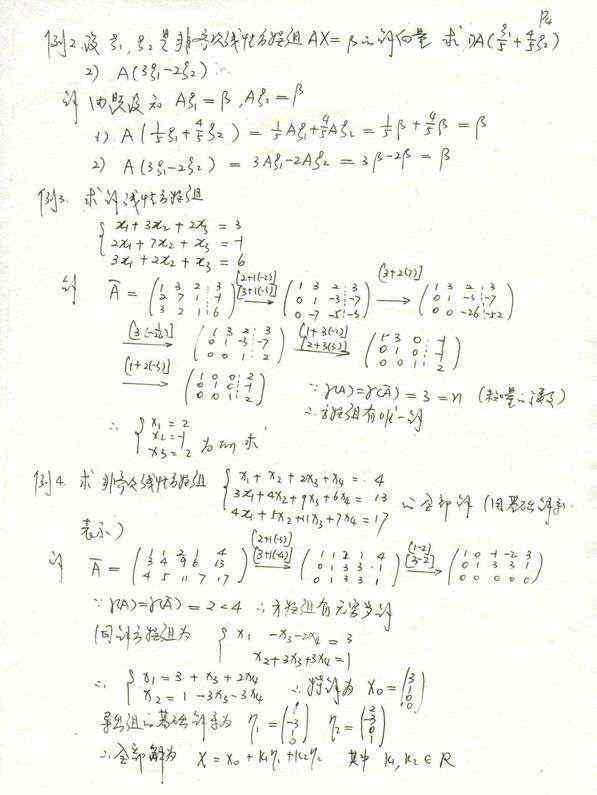 P4
例2. 设 ξ₁, ξ₂ 是非齐次线性方程组 AX=β 的解向量 求 1) A(ξ₁/5 + 4/5 ξ₂)
2) A(3ξ₁-2ξ₂)
解 由题设知 Aξ₁=β, Aξ₂=β
1) A(1/5 ξ₁+4/5 ξ₂) = 1/5 Aξ₁+4/5 Aξ₂ = 1/5 β + 4/5 β = β
2) A(3ξ₁-2ξ₂) = 3Aξ₁-2Aξ₂ = 3β-2β = β
例3. 求解线性方程组
{ x₁+3x₂+2x₃ = 3
2x₁+7x₂+x₃ = -1
3x₁+2x₂+x₃ = 6
解 Ā = (1 3 2 3; 2 7 1 -1; 3 2 1 6) [2+1(-2)] [3+1(-3)] → (1 3 2 3; 0 1 -3 -7; 0 -7 -5 -3) [3+2(7)] → (1 3 2 3; 0 1 -3 -7; 0 0 -26 -52)
[3(-1/26)] → (1 3 2 3; 0 1 -3 -7; 0 0 1 2) [1+3(-2)] [2+3(3)] → (1 3 0 -1; 0 1 0 -1; 0 0 1 2)
[1+2(-3)] → (1 0 0 2; 0 1 0 -1; 0 0 1 2) ∵ r(A)=r(Ā)=3=n (未知量的个数)
∴ 方程组有唯一解
∴ { x₁=2
x₂=-1
x₃=2 为所求
例4. 求非齐次线性方程组 { x₁+x₂+2x₃+x₄ = 4
3x₁+4x₂+9x₃+6x₄ = 13
4x₁+5x₂+11x₃+7x₄ = 17 的全部解 (用基础解系
表示)
解 Ā = (1 1 2 1 4; 3 4 9 6 13; 4 5 11 7 17) [2+1(-3)] [3+1(-4)] → (1 1 2 1 4; 0 1 3 3 1; 0 1 3 3 1) [1-2] [3-2] → (1 0 -1 -2 3; 0 1 3 3 1; 0 0 0 0 0)
∵ r(A)=r(Ā)=2<4 ∴ 方程组有无穷多解
同解方程组为 { x₁ -x₃-2x₄ = 3
x₂+3x₃+3x₄ = 1
∴ { x₁ = 3 + x₃+2x₄
x₂ = 1 -3x₃-3x₄ ∴ 特解为 X₀ = (3; 1; 0; 0)
导出组的基础解系为 η₁ = (1; -3; 1; 0) η₂ = (2; -3; 0; 1)
∴ 全部解为 X = X₀ + k₁η₁ + k₂η₂ 其中 k₁, k₂ ∈ R